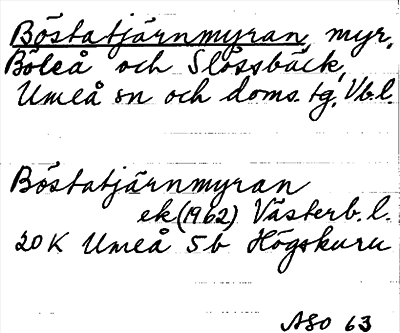 Böstatjärnmyran, myr,
Böleå och Slössbäck,
Umeå sn och doms. tg, Vb.l.
Böstatjärnmyran
ek (1962) Västerb. l.
20 K Umeå 5b Högskuru
ASO 63